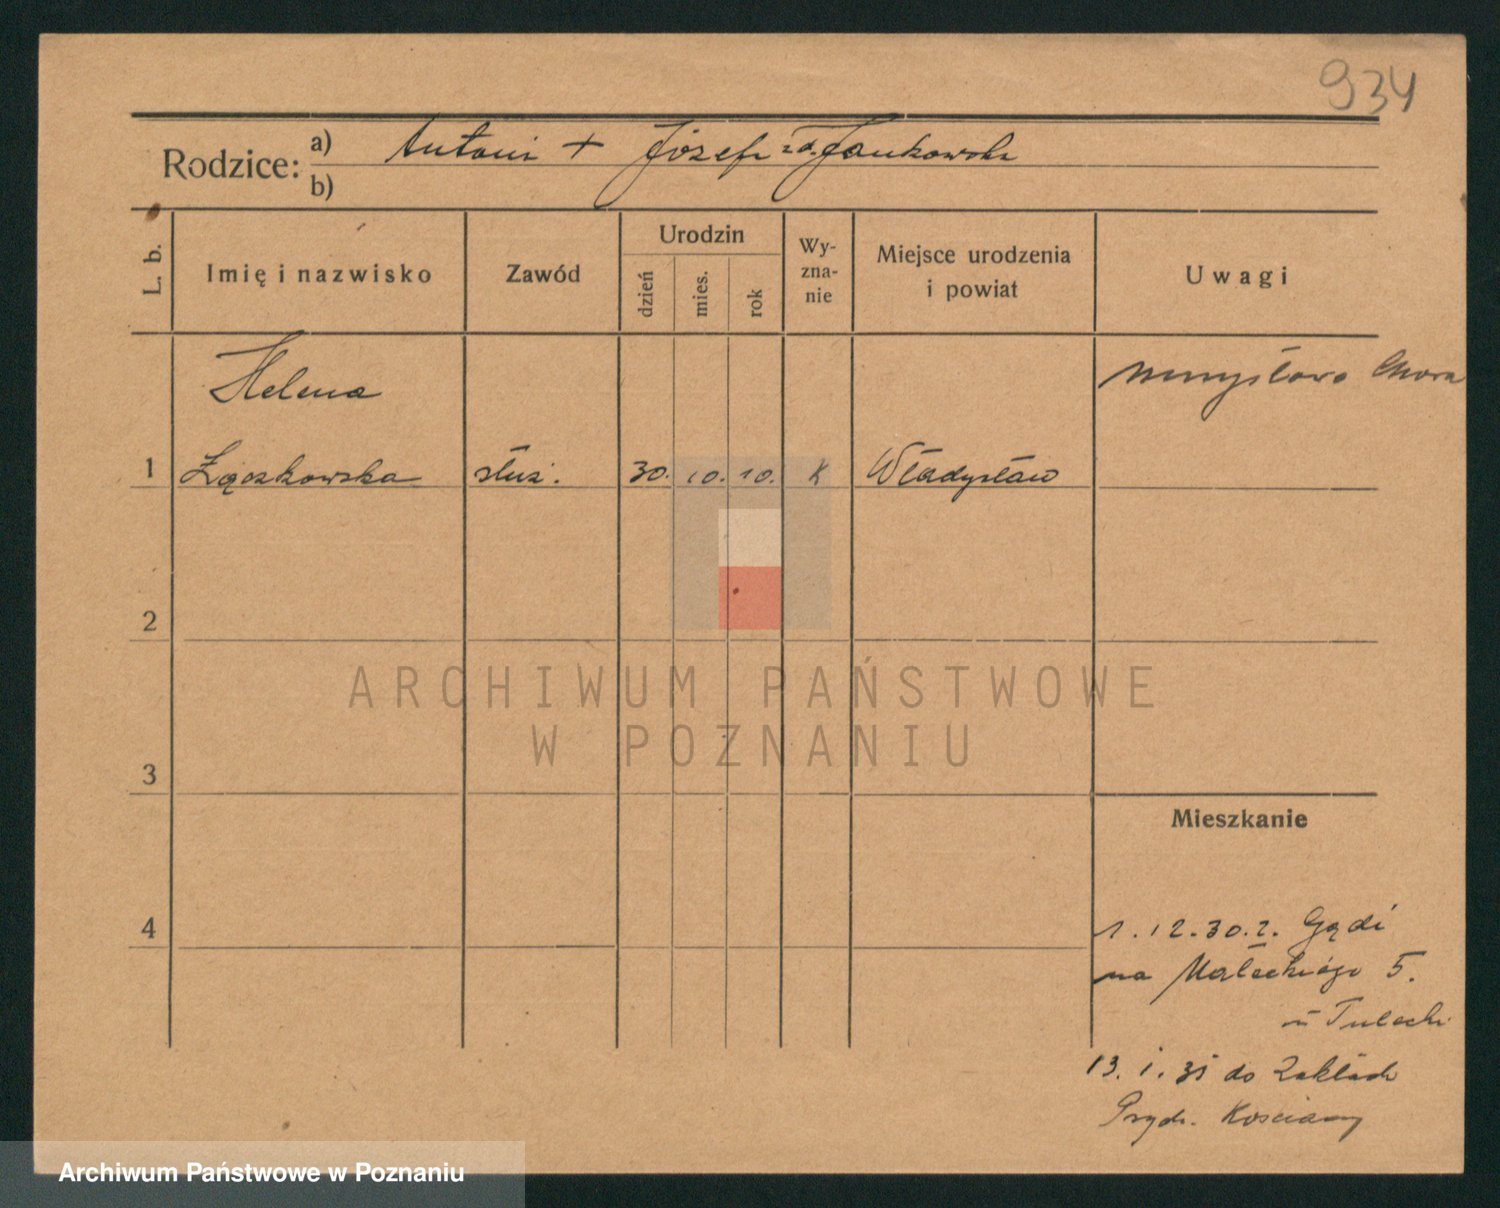 934
Rodzice: a) Antoni + Józefa zd. Jankowska
b)
L. b. Imię i nazwisko Zawód Urodzin dzień mies. rok Wy-zna-nie Miejsce urodzenia i powiat Uwagi
Helena umysłowo chora
1 Łączkowska służ. 30. 10. 10. K Władysław
2
ARCHIWUM PAŃSTWOWE
W POZNANIU
3
Mieszkanie
4
1.12.30. z Gądi
na Małeckiego 5.
u Tulecki
13.1.31 do Zakład
Psych. Kościany
Archiwum Państwowe w Poznaniu